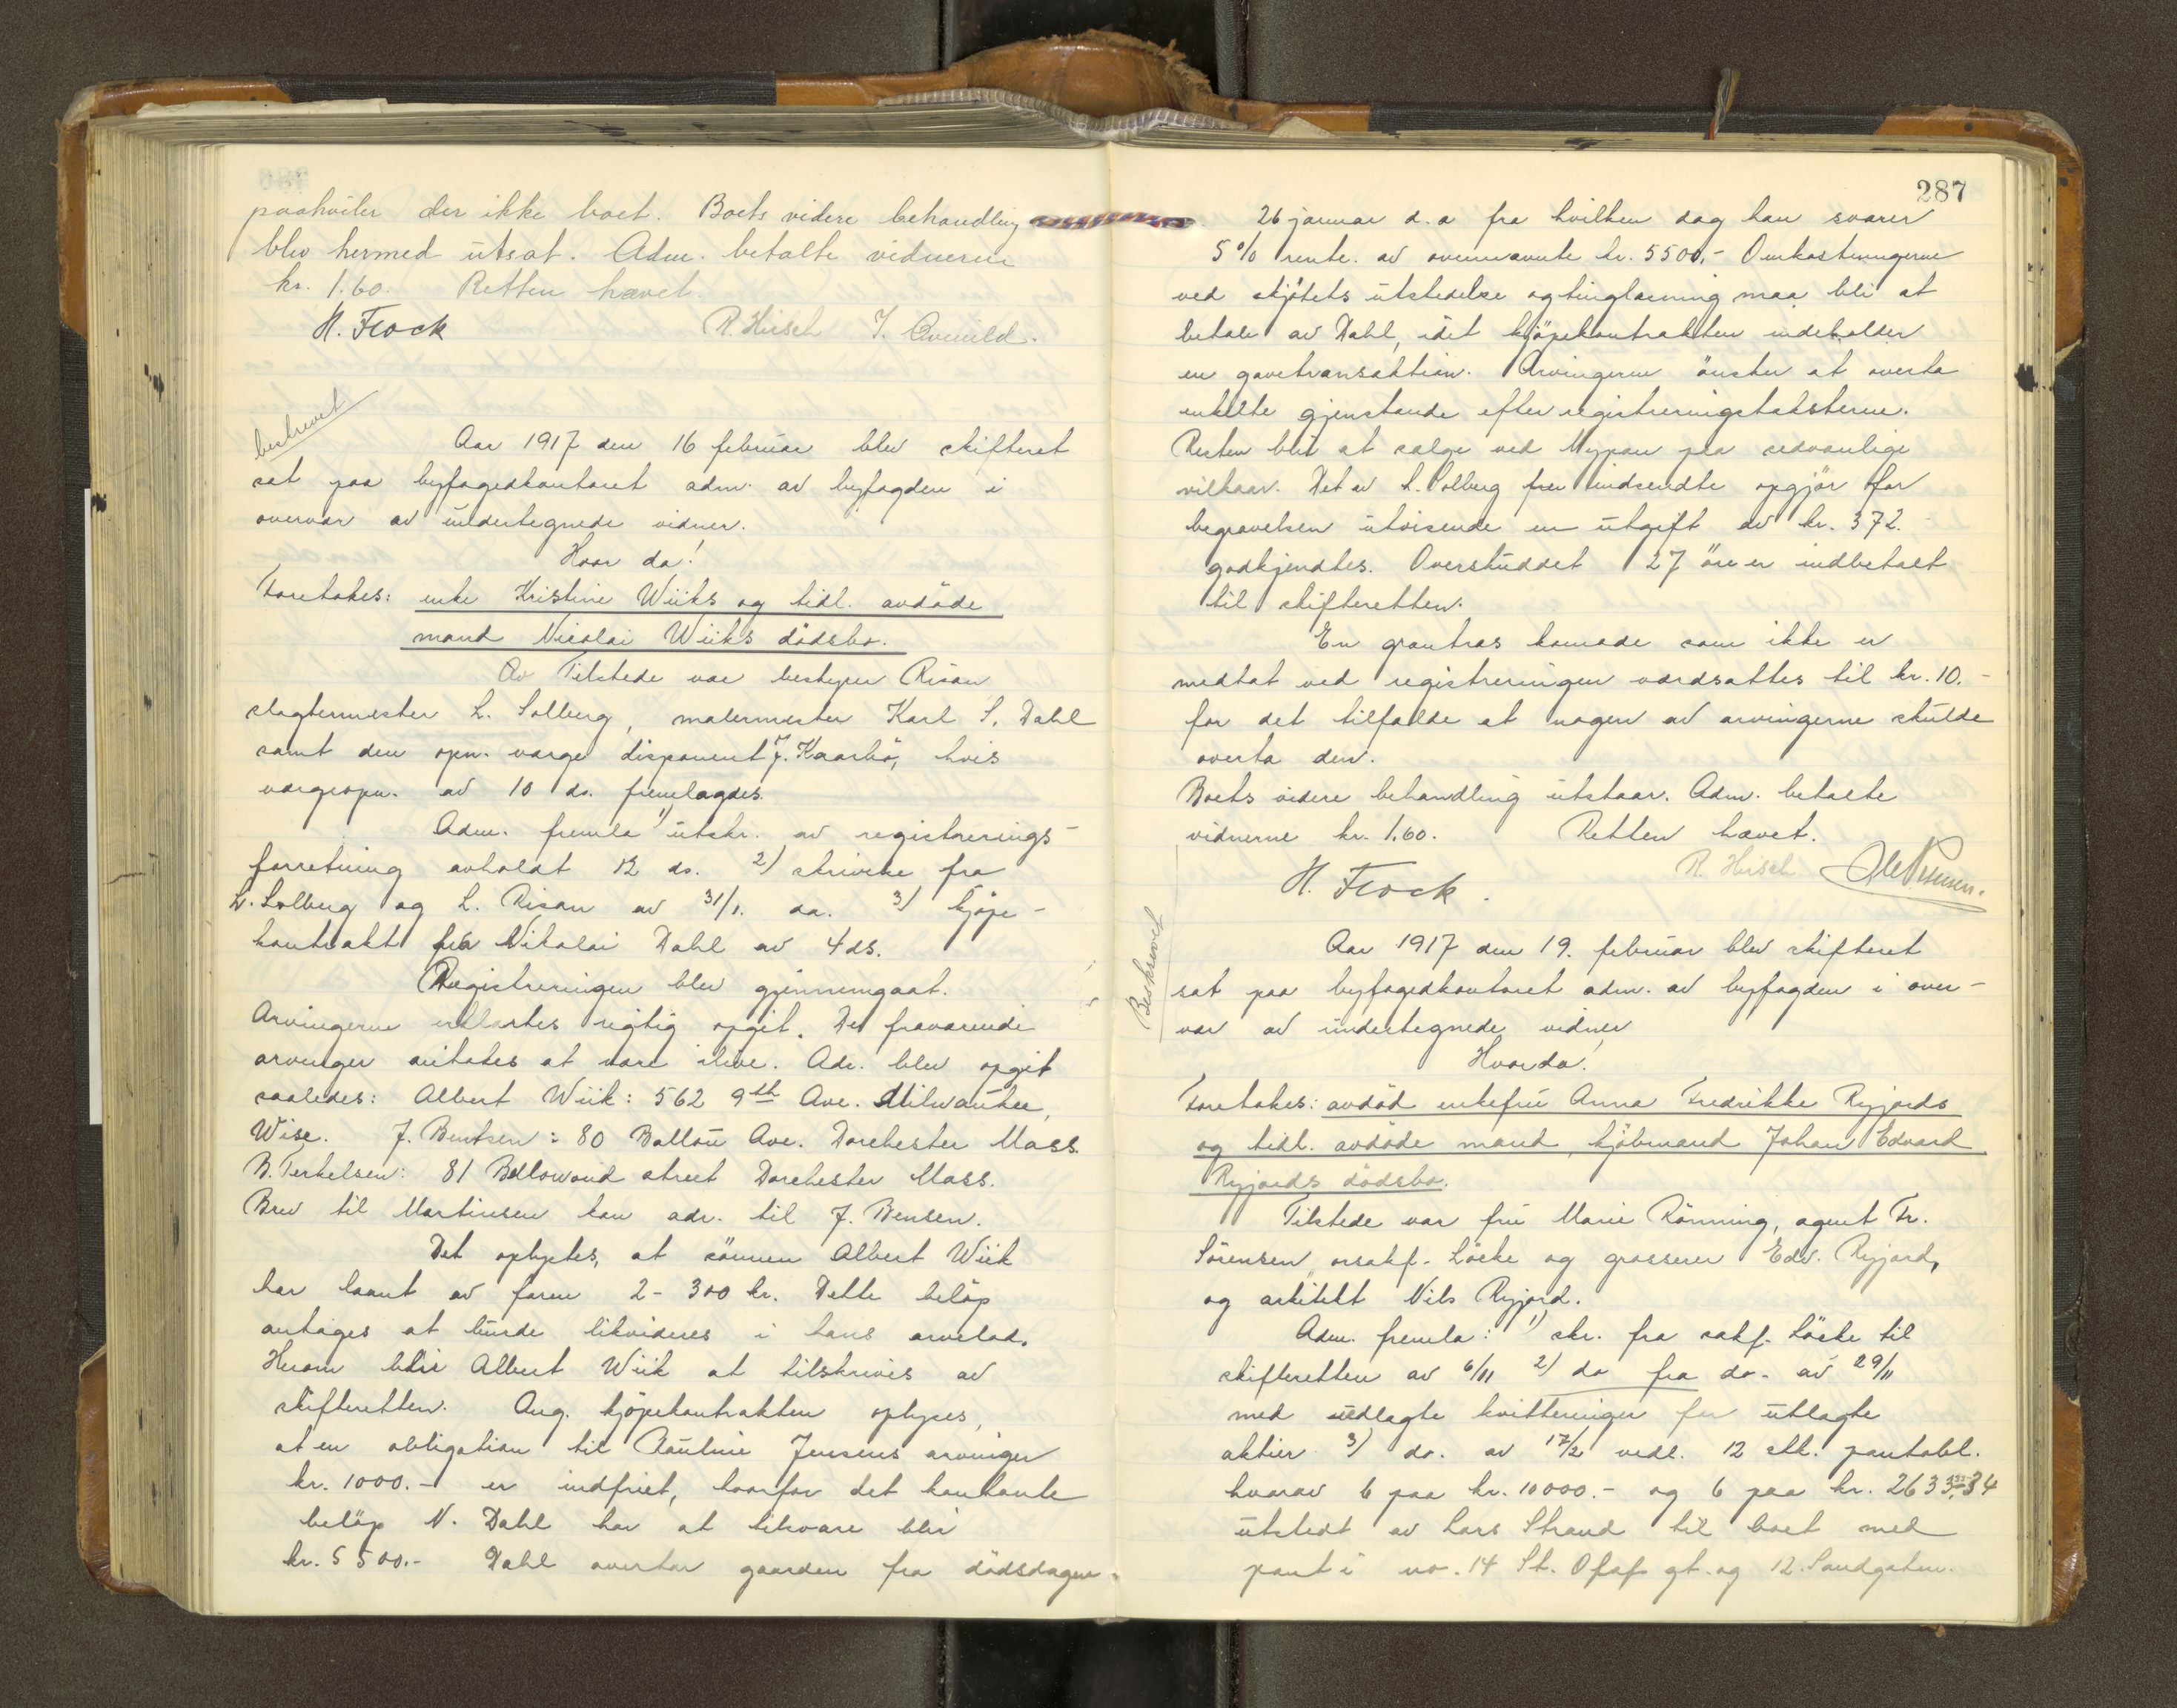 paahviler der ikke boet. Boets videre behandling
blev hermed utsat. Adm. betalte vidnerne
kr. 1.60. Retten hævet.
H. Flock R. Hirsch
beskrevet
Aar 1917 den 16 februar blev skifteret
sat paa byfogedkontoret adm. av byfogden i
overvær av undertegnede vidner.
Hvor da!
Foretokes: enke Kristine Wiiks og tidl. avdöde
mand Nicolai Wiiks dödsbo.
Av Tilstede var bestyrer Risan
slagtermester L. Solberg, malermester Karl S. Dahl
samt den opn. verge disponent J. Kaarbö, hvis
vergeopn. av 10 ds. fremlagdes.
Adm. fremla 1) utskr. av registrerings-
forretning avholdt 12 ds. 2) skrivelse fra
L. Solberg og L. Risan av 31/1. da. 3) kjöpe-
kontrakt fra Nikolai Dahl av 4 ds.
Registreringen blev gjennemgaat.
Arvingerne erklærtes rigtig opgit. De fraværende
arvinger antokes at være ilive. Adr. blev opgit
saaledes: Albert Wiik: 562 9th Ave. Milwaukee,
Wisc. J. Bentsen: 80 Ballou Ave. Dorchester Mass.
B. Terkelsen: 81 Bellowoud street Dorchester Mass.
Brev til Martinsen kan adr. til J. Bensen.
Det oplystes, at sönnen Albert Wiik
har laant av faren 2-300 kr. Dette belöp
antages at burde likvideres i hans arvelod.
Herom blir Albert Wiik at tilskrives av
skifteretten. Ang. kjöpekontrakten oplyses,
at en obligation til Pauline Jensens arvinger
kr. 1000.- er indfriet, hvorfor det kontante
belöp N. Dahl har at tilsvare blir
kr. 5500.- Dahl overtar gaarden fra dödsdagen
287
26 januar d.a fra hvilken dag han svarer
5% rente av ovennævnte kr. 5500.- Omkostningerne
ved skjötets utstedelse og tinglæsning maa bli at
betale av Dahl, idet kjöpekontrakten indeholder
en gavetransaktion. Arvingerne önsker at overta
enkelte gjenstande efter registreringstaksterne.
Resten blir at sælge ved Mypan paa sedvanlige
vilkaar. Det av L. Solberg frem indsendte opgjör for
begravelsen utvisende en utgift av kr. 372.-
godkjendtes. Overskuddet 27 öre er indbetalt
til skifteretten.
En komode som ikke er
medtat ved registreringen værdsattes til kr. 10.-
for det tilfælde at nogen av arvingerne skulde
overta den.
Boets videre behandling utstaar. Adm. betalte
vidnerne kr. 1.60. Retten hævet.
H. Flock. R. Hirsch
Beskrevet
Aar 1917 den 19. februar blev skifteret
sat paa byfogedkontoret adm. av byfogden i over-
vær av undertegnede vidner
Hvor da!
Foretokes: avdöd enkefru Anna Fredrikke Ryjords
og tidl. avdöde mand, kjöbmand Johan Edvard
Ryjords dödsbo.
Tilstede var fru Marie Rönning, agent Fr.
Sörensen, orsakf. Löcke og grosserer Edv. Ryjord,
og arkitekt Nils Ryjord.
Adm. fremla: 1) skr. fra sakf. Löcke til
skifteretten av 6/11 2) do fra do. av 29/11
med vedlagte kvitteringer for utlagte
aktier 3) do. av 17/2 vedl. 12 stk. pantobl.
hvorav 6 paa kr. 10000.- og 6 paa kr. 2633.34
utstedt av Lars Strand til boet med
pant i no. 14 St. Olafs gt. og 12. Sandgaten.